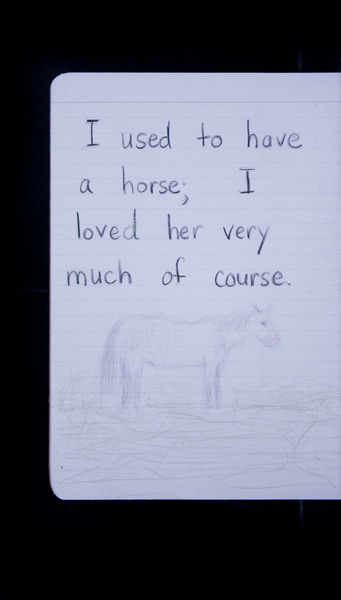 I used to have
a horse; I
loved her very
much of course.